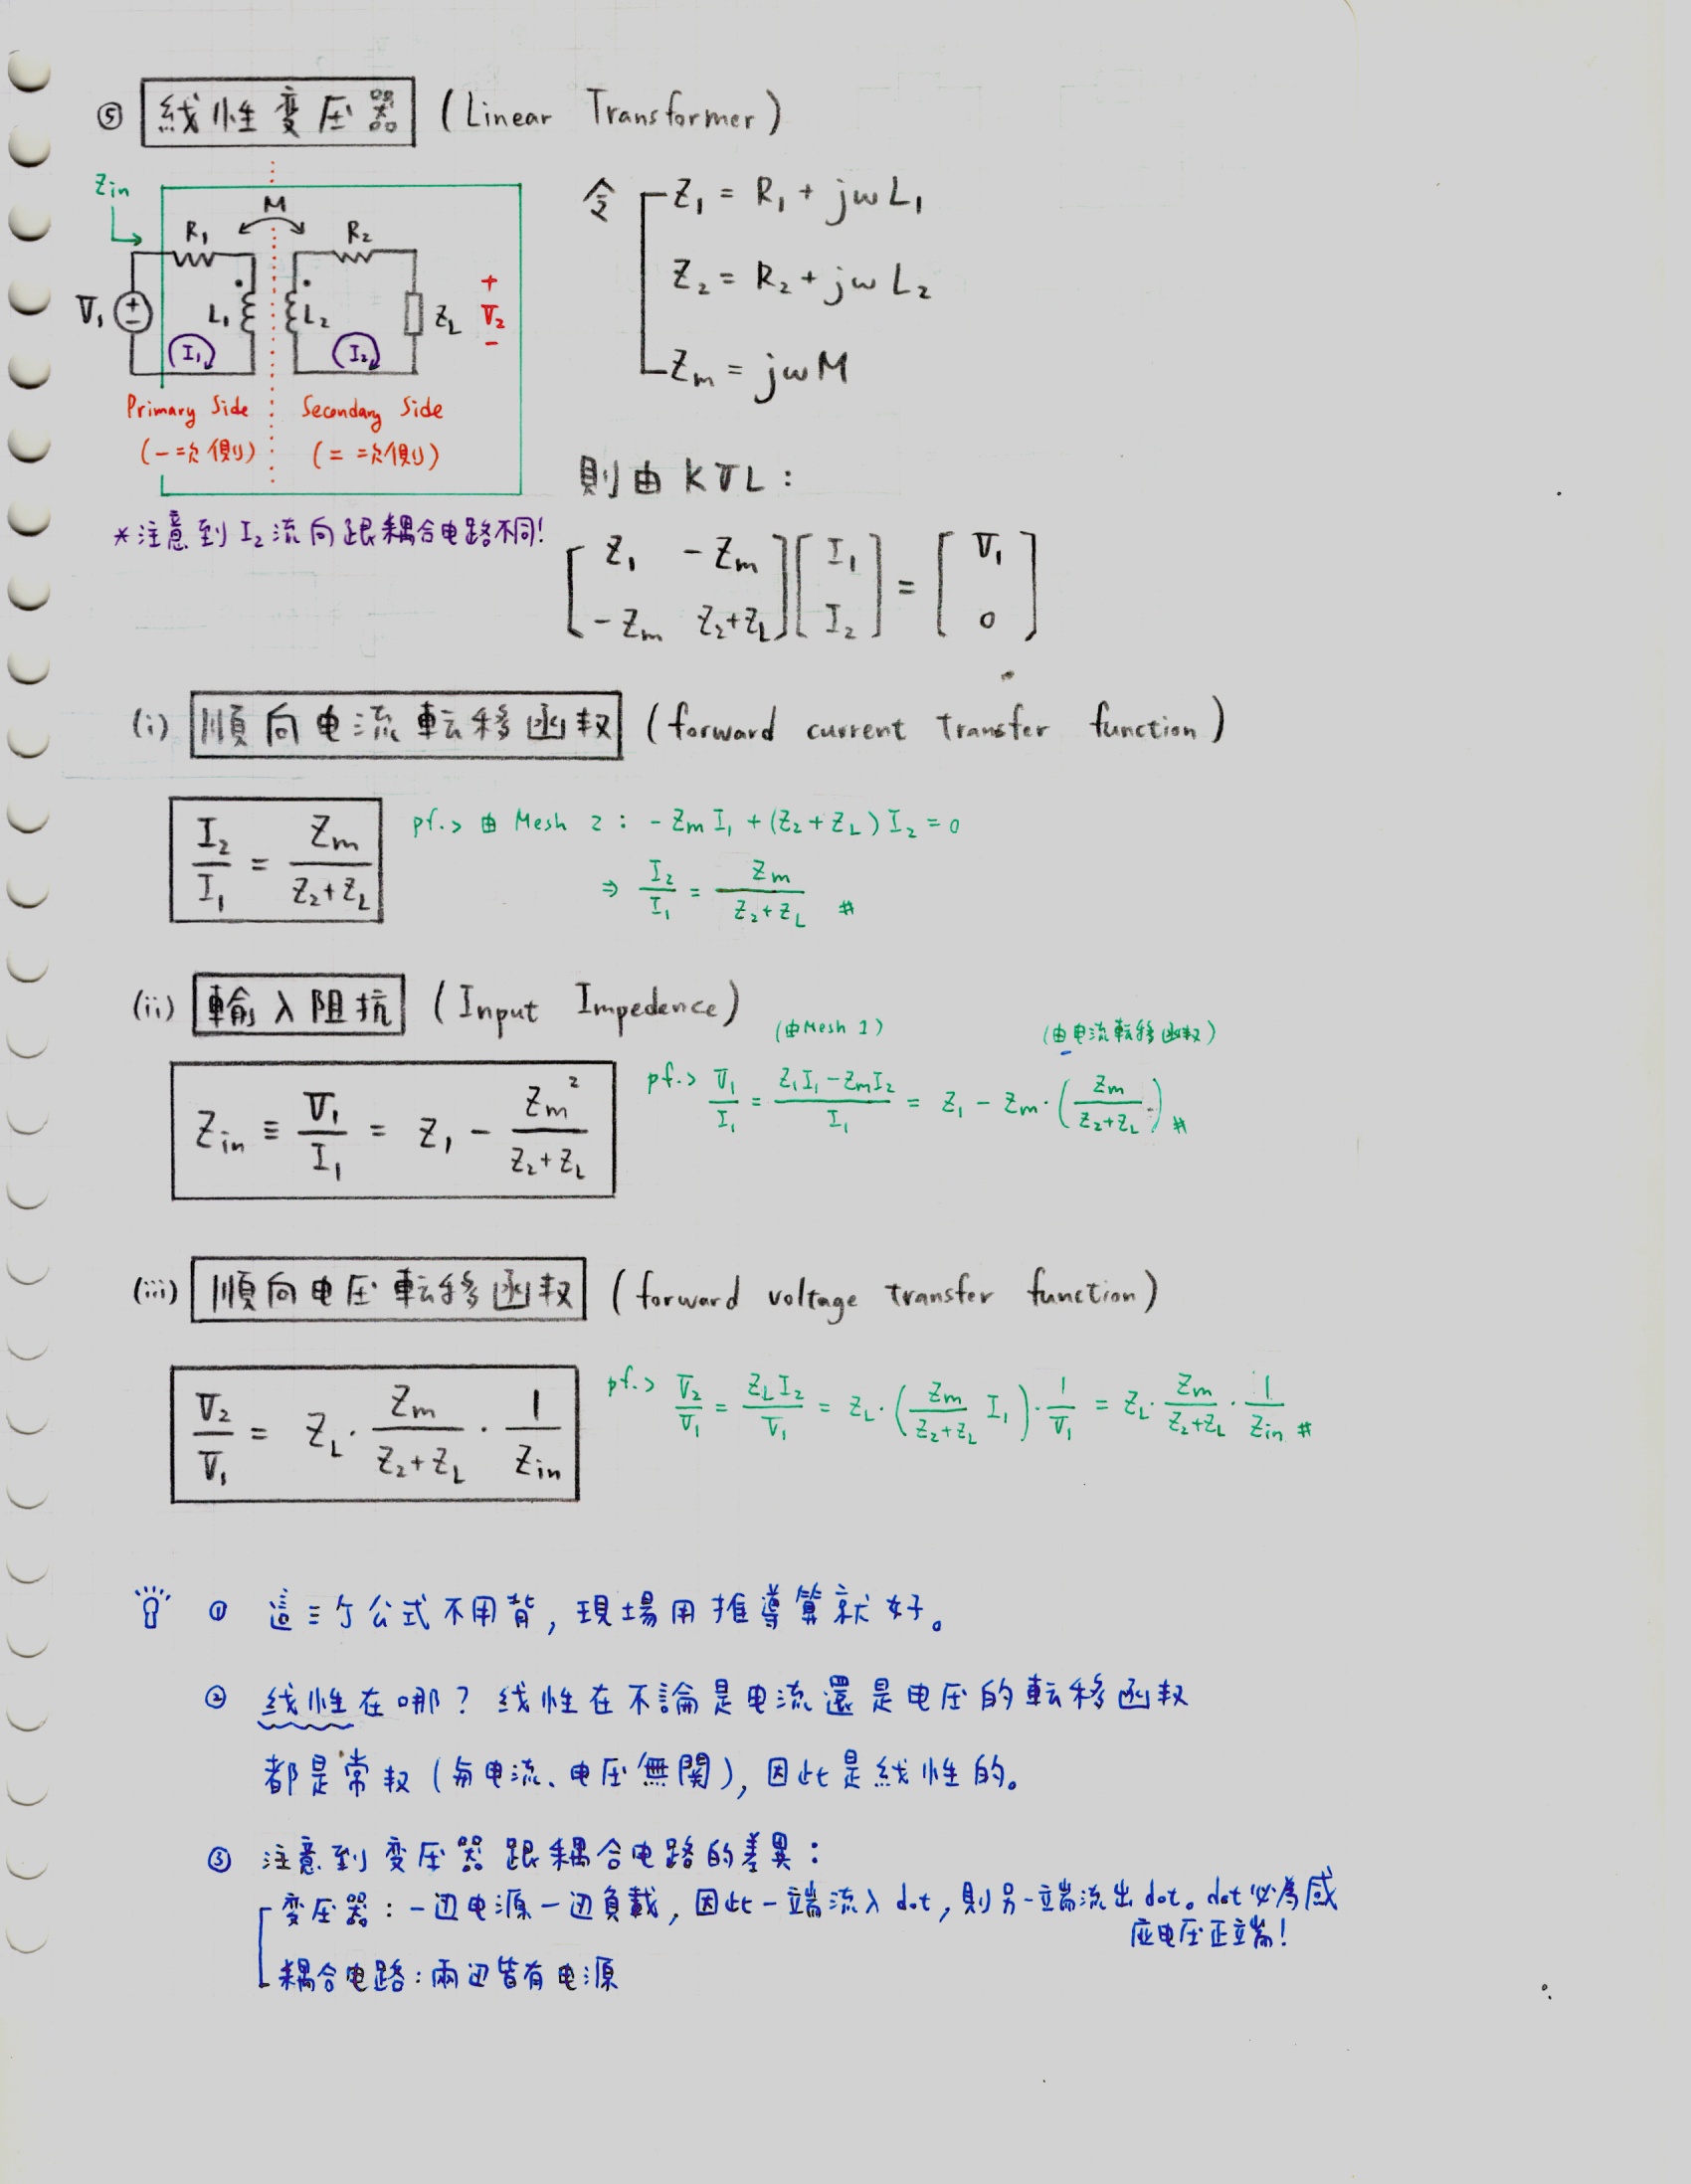 ⑤ 綫性变压器 (Linear Transformer)
Zin
M
R₁ R₂
V₁ + − L₁ L₂ Z_L + V₂ −
I₁ I₂
Primary Side Secondary Side
(一次側) (二次側)
*注意到 I₂ 流向跟耦合电路不同!
令 Z₁ = R₁ + jωL₁
Z₂ = R₂ + jωL₂
Zm = jωM
則由 KVL:
[Z₁ −Zm; −Zm Z₂+Z_L][I₁; I₂] = [V₁; 0]
(i) 順向电流転移函数 (forward current Transfer function)
I₂/I₁ = Zm/(Z₂+Z_L)
pf.> 由 Mesh 2 : −Zm I₁ + (Z₂+Z_L) I₂ = 0
⇒ I₂/I₁ = Zm/(Z₂+Z_L) #
(ii) 輸入阻抗 (Input Impedence)
Zin ≡ V₁/I₁ = Z₁ − Zm²/(Z₂+Z_L)
(由Mesh 1) (由电流転移函数)
pf.> V₁/I₁ = (Z₁I₁−ZmI₂)/I₁ = Z₁ − Zm·(Zm/(Z₂+Z_L)) #
(iii) 順向电压転移函数 (forward voltage transfer function)
V₂/V₁ = Z_L · Zm/(Z₂+Z_L) · 1/Zin
pf.> V₂/V₁ = Z_L I₂/V₁ = Z_L·(Zm/(Z₂+Z_L) I₁)·1/V₁ = Z_L·Zm/(Z₂+Z_L)·1/Zin #
① 這三个公式不用背,現場用推導算就好。
② 线性在哪? 线性在不論是电流還是电压的転移函数
都是常数 (与电流、电压無関),因此是綫性的。
③ 注意到变压器跟耦合电路的差異:
变压器:一边电源一边負載,因此一端流入 dot,則另一端流出 dot。dot 必為感
应电压正端!
耦合电路:兩边皆有电源